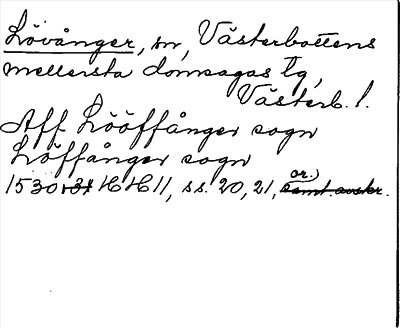 Lövånger, sn, Västerbottens
mellersta domsagas tg,
Västerb. l.
Aff Lööffånger sogn
Löffånger sogn
or.)
1530+31 HH 11, ss. 20, 21, samt. avskr.